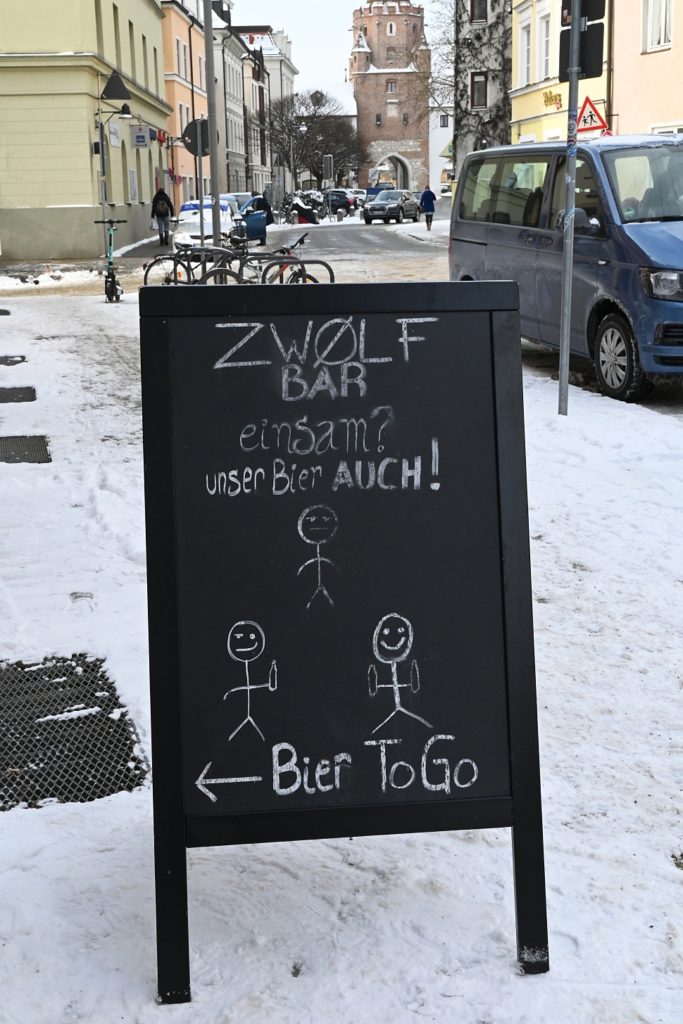 ZWØLF
BAR
einsam?
unser Bier AUCH!
← Bier ToGo